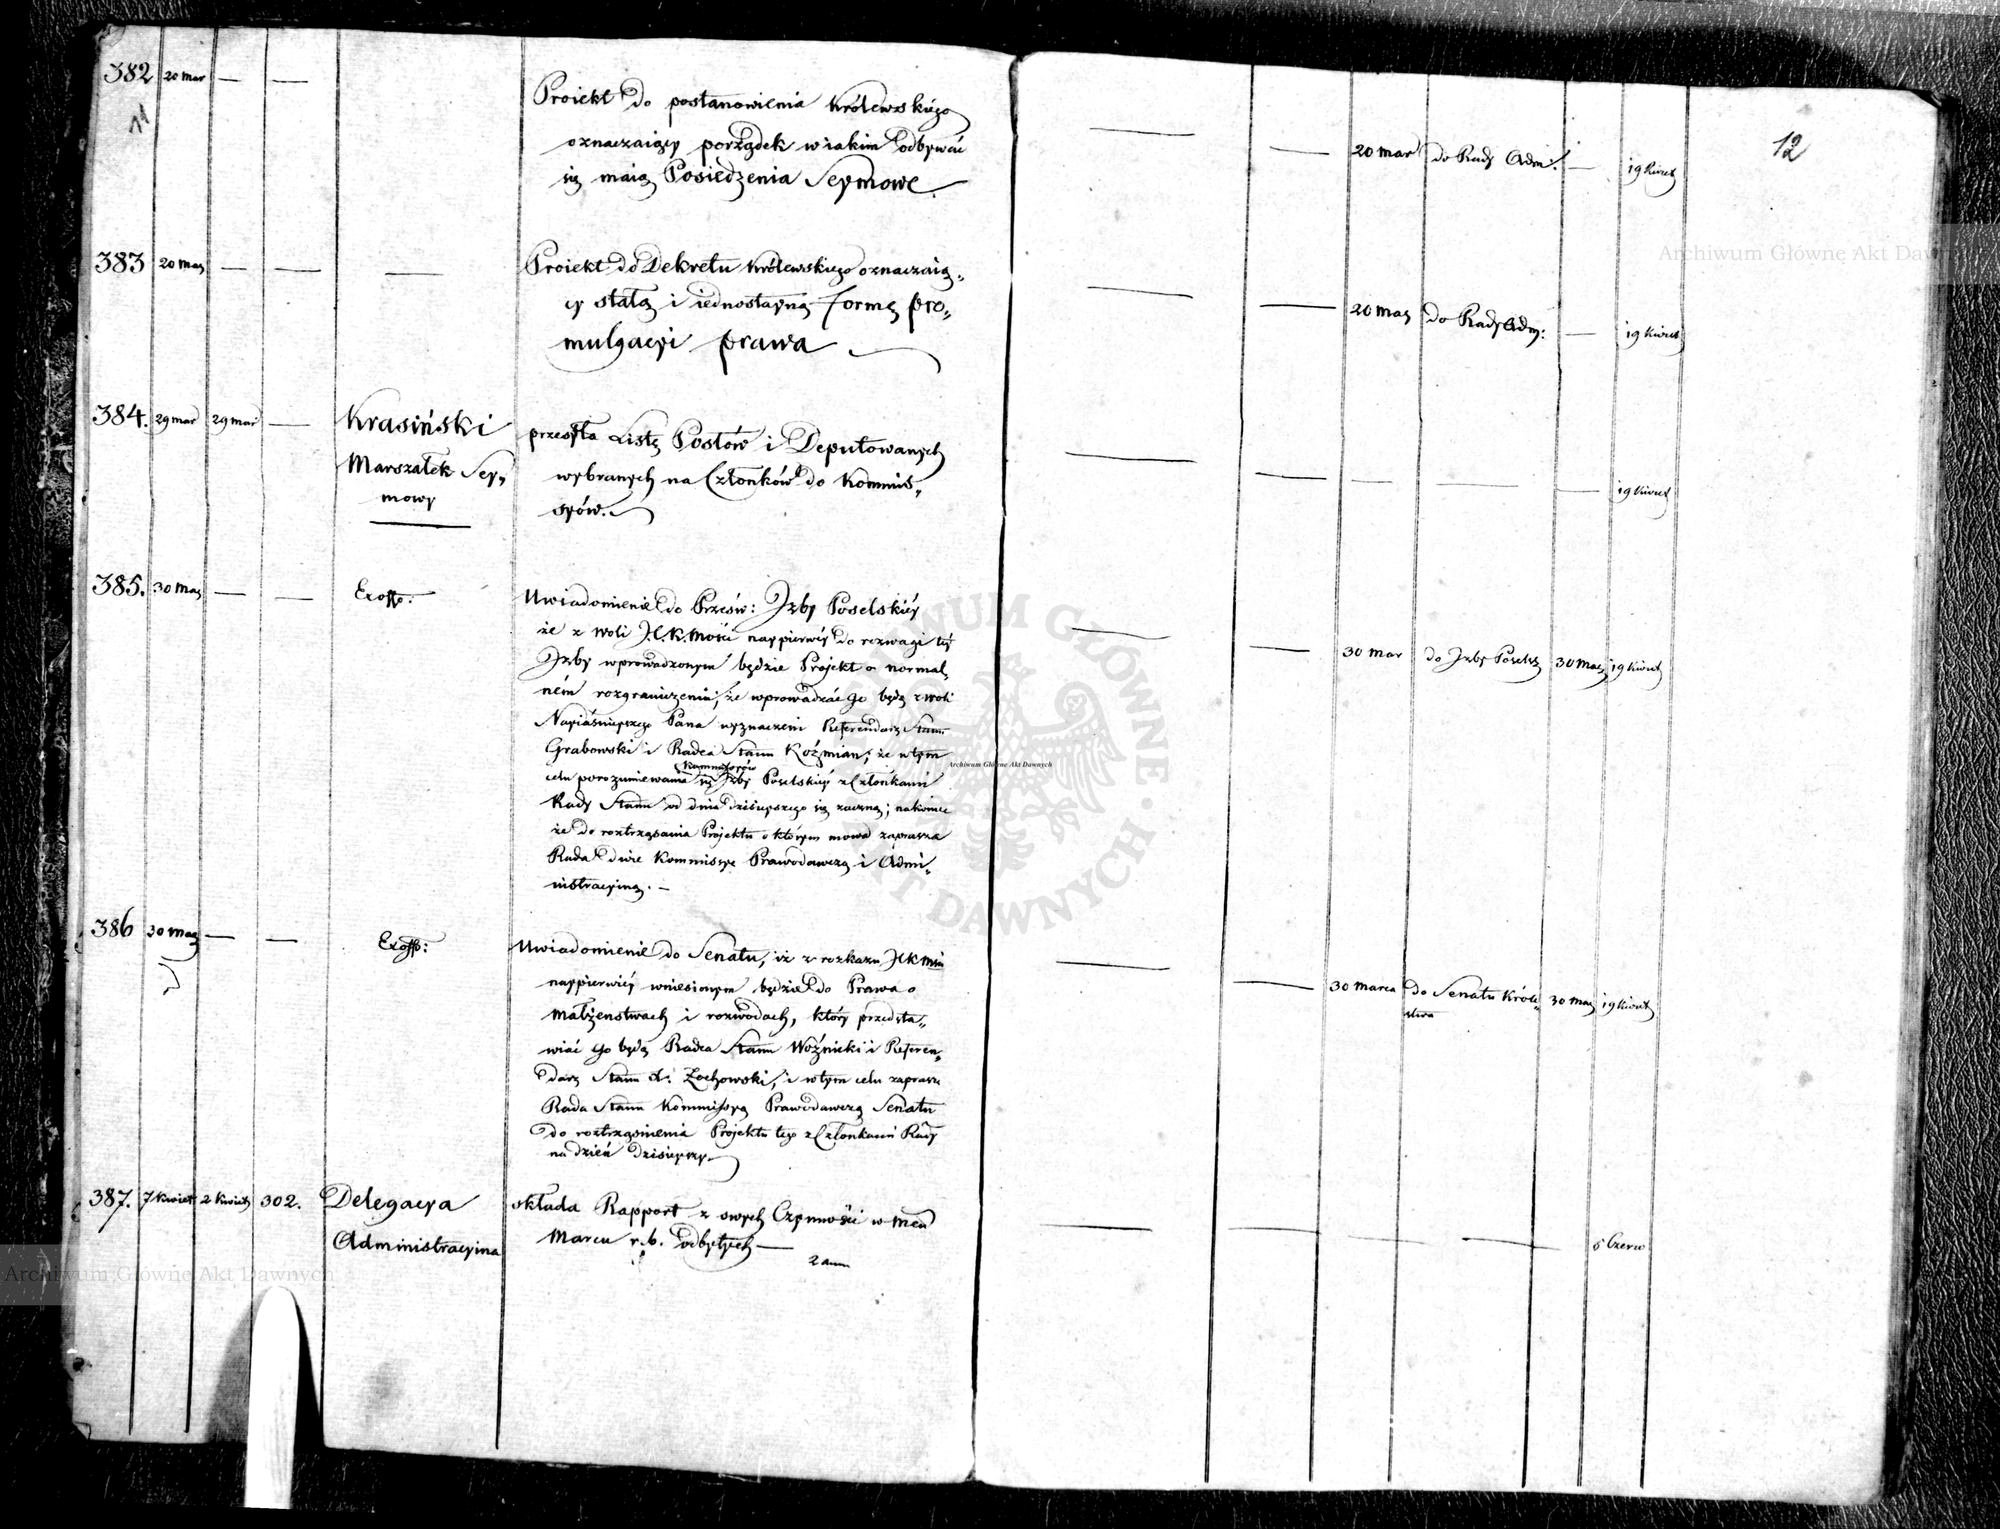 382 20 mar — —
11
Proiekt do postanowienia Królewskiego
oznaczaiący porządek w iakim odbywać
się maią Posiedzenia Seymowe.
— — 20 mar do Rady Adm: — 19 Kwiet
12
383 20 mar — — —
Proiekt do Dekretu Królewskiego oznaczaią„
cy stałą i iednostayną formę pro„
mulgacyi prawa
— — 20 mar do Rady Adm: — 19 Kwiet
384. 29 mar 29 mar —
Krasiński
Marszałek Sey„
mowy
przesyła Listę Posłów i Deputowanych
wybranych na Członków do Kommis„
syów.
— — — — — 19 Kwiet
385. 30 mar — — Exoffo:
Uwiadomienie do Prześw: Izby Poselskiéy
że z woli J.C.K.Mości naypierwéy do rozwagi téy
Izby wprowadzonym będzie Projekt o normal„
ném rozgraniczeniu, że wprowadzać go będą z woli
Nayiaśnieyszego Pana wyznaczeni Referendarz Stanu
Grabowski i Radca Stanu Koźmian; że w tym
Kommissyów
celu porozumiewania się Izby Poselskiéy z Członkami
Rady Stanu od dnia dzisieyszego się zaczną; nakoniec
że do roztrząsania Projektu o którym mowa zaprasza
Rada dwie Kommissye Prawodawczą i Admi„
nistracyiną. —
— — 30 mar do Izby Poselsk 30 mar 19 Kwiet
386 30 mar — — Exoffo:
Uwiadomienie do Senatu, iż z rozkazu JCKMci
naypierwiéy wniesionym będzie do Prawa o
małżeństwach i rozwodach, który przedsta„
wiać go będą Radca Stanu Woźnicki i Referen„
darz Stanu A: Żochowski, i w tym celu zaprasza
Rada Stanu Kommissyą Prawodawczą Senatu
do roztrząśnienia Projektu tego z Członkami Rady
na dzień dzisieyszy.
— — 30 marca do Senatu Króle„ 30 mar 19 Kwiet
stwa
387. 7 Kwiet 2 Kwiet 302.
Delegacya
Administracyina
składa Rapport z swych Czynności w mcu
Marcu r. b. odbytych —
2 ann
— — — — 5 Czerw
Archiwum Główne Akt Dawnych
Archiwum Główne Akt Dawnych
Archiwum Główne Akt Dawnych